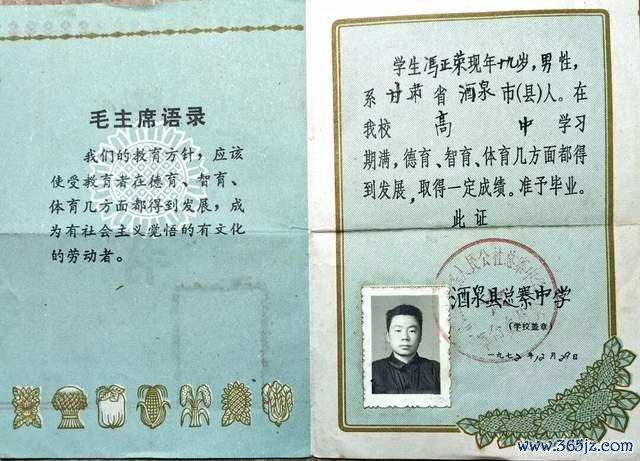 毛主席语录
我们的教育方针，应该
使受教育者在德育、智育、
体育几方面都得到发展，成
为有社会主义觉悟的有文化
的劳动者。
学生冯正荣现年十九岁，男性，
系甘肃省酒泉市(县)人。在
我校高中学习
期满，德育、智育、体育几方面都得
到发展，取得一定成绩。准予毕业。
此证
人民公社总寨
酒泉县总寨中学
(学校盖章)
一九七二年12月29日
www.365jz.com